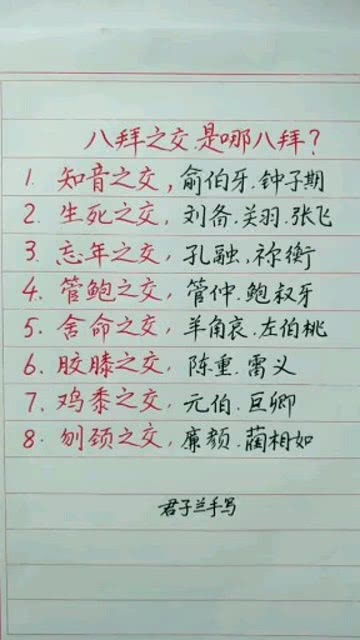 八拜之交是哪八拜?
1. 知音之交,俞伯牙.钟子期
2. 生死之交,刘备.关羽.张飞
3. 忘年之交,孔融,祢衡
4. 管鲍之交,管仲.鲍叔牙
5. 舍命之交,羊角哀.左伯桃
6. 胶膝之交,陈重.雷义
7. 鸡黍之交,元伯.巨卿
8. 刎颈之交,廉颜.蔺相如
君子兰手写